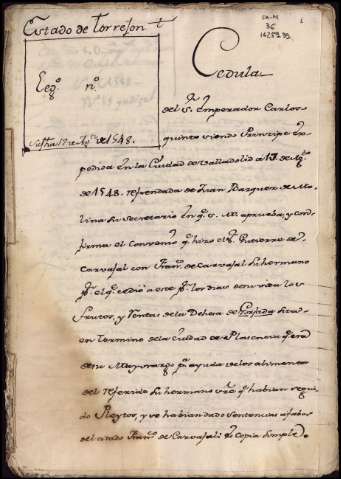 Estado de Torrejon t
CA-M
36
16259.99
Leg.º n.º
Su fha 17 de Ag.to de 1548.
Cedula
del S.r Emperador Carlos
quinto siendo Principe ex
pedida en la Ciudad de Valladolid a 17 de Ag.to
de 1548. refrendada de Juan Vazquez de Mo
lina su Secretario en q.e S. M. aprueba, y con
firma el Convenio q.e hizo el S.r Gutierre de
Carvajal con Fran.co de Carvajal su hermano
p.r el q.e cedio a este p.r los dias de su vida los
frutos, y Rentas de la Dehesa de Pajada sita
en termino de la Ciudad de Plasencia q.e era
de su Mayorazgo p.a ayuda de los alimentos
del referido su hermano sre. q.e habian segui
do Pleytos, y se habian dado sentencias a fabor
del citado Fran.co de Carvajal: es Copia simple